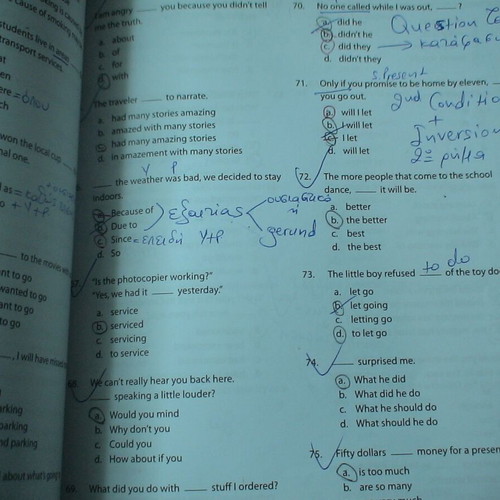 I'm angry ____ you because you didn't tell
me the truth.
a. about
b. of
c. for
d. with
The traveler ____ to narrate.
a. had many stories amazing
b. amazed with many stories
c. had many amazing stories
d. in amazement with many stories
____ the weather was bad, we decided to stay
indoors.
a. Because of
b. Due to
c. Since = επειδή Υ+Ρ
d. So
εξαιτίας
ουσιαστικό
ή
gerund
"Is the photocopier working?"
"Yes, we had it ____ yesterday."
a. service
b. serviced
c. servicing
d. to service
68. We can't really hear you back here.
____ speaking a little louder?
a. Would you mind
b. Why don't you
c. Could you
d. How about if you
69. What did you do with ____ stuff I ordered?
70. No one called while I was out, ____ ?
a. did he
b. didn't he
c. did they
d. didn't they
Question
71. Only if you promise to be home by eleven, ____
you go out.
a. will I let
b. I will let
c. I let
d. will let
s. Present
2nd Condition
+
Inversion
72. The more people that come to the school
dance, ____ it will be.
a. better
b. the better
c. best
d. the best
73. The little boy refused to do of the toy
a. let go
b. let going
c. letting go
d. to let go
74. ____ surprised me.
a. What he did
b. What did he do
c. What he should do
d. What should he do
75. Fifty dollars ____ money for a
a. is too much
b. are so many
students live in
transport services.
won the local cup
to the movies
wanted to go
to go
____, I will have missed
parking
and parking
about what's going